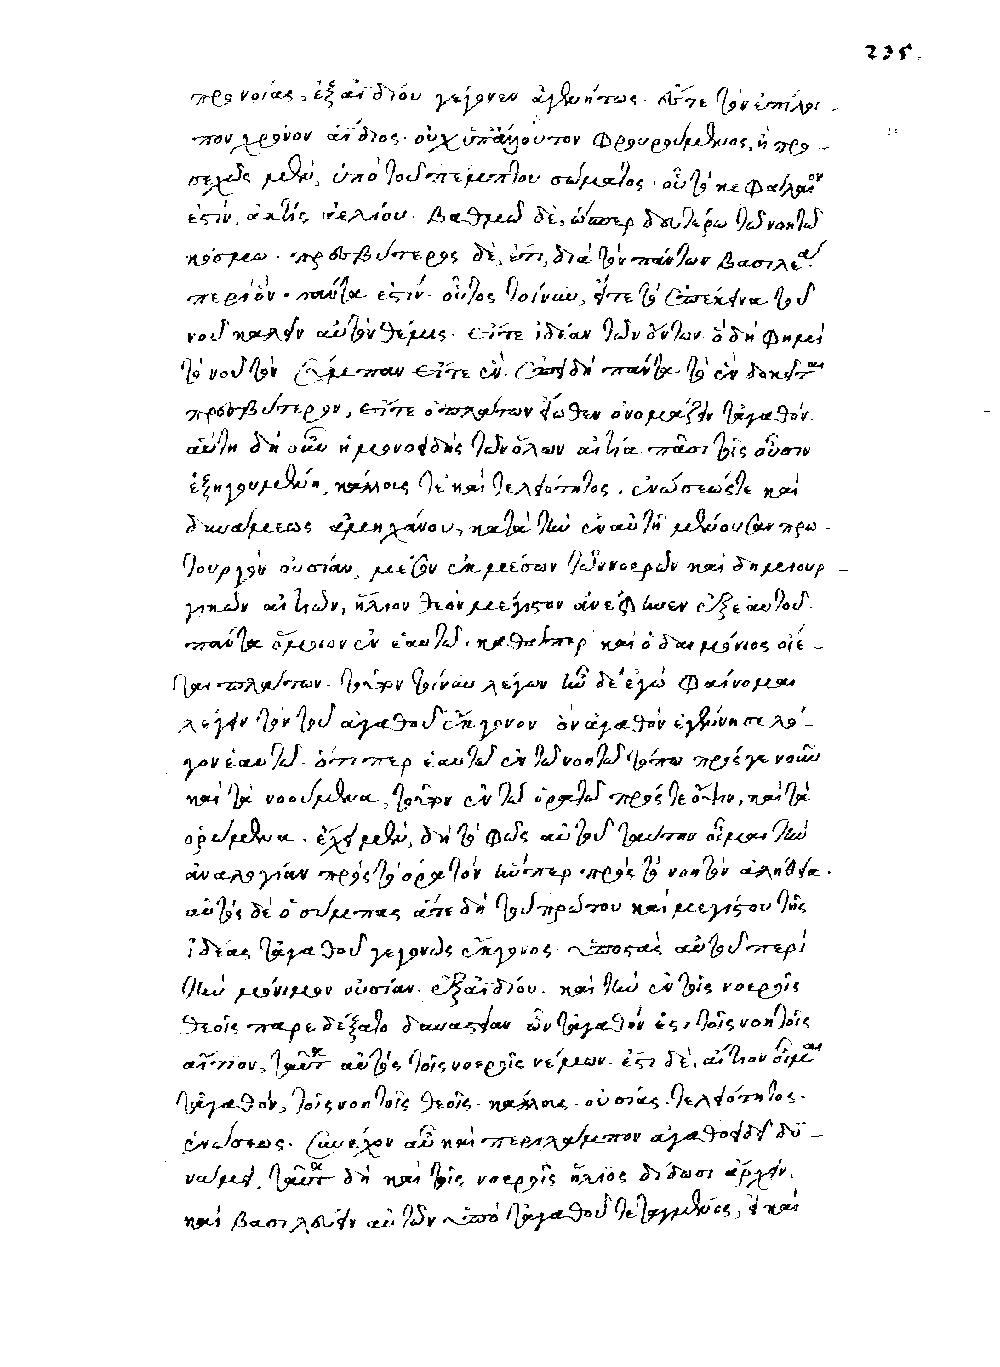 235.
προνοίας, ἐξ ἀϊδίου γέγονεν ἀγεννήτως. ἔς τε τὸν ἐπίλοι-
πον χρόνον ἀΐδιος. οὐχ ὑπ' ἄλλου του φρουρούμενος, ἢ προ-
σεχῶς μὲν, ὑπὸ τοῦ πέμπτου σώματος. οὗ τὸ κεφάλαιον
ἐστὶν, ἀκτὶς ἀελίου. βαθμῷ δὲ, ὥσπερ δευτέρῳ τῷ νοητῷ
κόσμῳ. πρεσβύτερος δὲ, ἔτι, διὰ τὸν πάντων βασιλέα.
περὶ ὃν πάντα ἐστίν. οὗτος τοίνυν, εἴτε τὸ ἐπέκεινα τοῦ
νοῦ καλεῖν αὐτὸν θέμις. εἴτε ἰδέαν τῶν ὄντων. ὃ δὴ φημὶ
τὸ νοητὸν ξύμπαν εἴτε ἕν. ἐπειδὴ πάντα τὸ ἓν δοκεῖ πως
πρεσβύτερον, εἴτε ὃ πλάτων εἴωθεν ὀνομάζειν τἀγαθόν.
αὕτη δὴ οὖν ἡ μονοειδὴς τῶν ὅλων αἰτία πᾶσι τοῖς οὖσιν
ἐξηγουμένη, κάλλους τε καὶ τελειότητος. ἑνώσεώς τε καὶ
δυνάμεως ἀμηχάνου, κατὰ τὴν ἐν αὐτῇ μένουσαν πρω-
τουργὸν οὐσίαν, μέσον ἐκ μέσων τῶν νοερῶν καὶ δημιουρ-
γικῶν αἰτιῶν, ἥλιον θεὸν μέγιστον ἀνέφηνεν ἐξ ἑαυτοῦ.
πάντα ὅμοιον ἑαυτῷ. καθάπερ καὶ ὁ δαιμόνιος οἴε-
ται πλάτων. τοῦτον τοίνυν λέγων ἦν δ' ἐγώ φάναι με
λέγειν τὸν τοῦ ἀγαθοῦ ἔκγονον ὃν ἀγαθὸν ἐγέννησε λό-
γον ἑαυτῷ. ὅτι περ ἑαυτῷ ἐν τῷ νοητῷ τόπῳ πρός γε νοῦν
καὶ τὰ νοούμενα, τοῦτον ἐν τῷ ὁρατῷ πρός τε ὄψιν, καὶ τὰ
ὁρώμενα. ἔχει μὲν, δὴ τὸ φῶς αὐτοῦ ταύτην οἶμαι τὴν
ἀναλογίαν πρὸς τὸ ὁρατόν ἥνπερ πρὸς τὸ νοητὸν ἀλήθεια.
αὐτὸς δὲ ὁ σύμπας ἅτε δὴ τοῦ πρώτου καὶ μεγίστου τῆς
ἰδέας τἀγαθοῦ γεγονὼς ἔκγονος. ὑποστὰς αὐτοῦ περὶ
τὴν μόνιμον οὐσίαν ἐξ ἀϊδίου. καὶ τὴν ἐν τοῖς νοεροῖς
θεοῖς παρεδέξατο δυναστείαν ὧν τἀγαθόν ἐστι τοῖς νοητοῖς
αἴτιον, ταῦτα αὐτὸς τοῖς νοεροῖς νέμων. ἔστι δὲ, αἴτιον οἶμαι
τἀγαθόν, τοῖς νοητοῖς θεοῖς. κάλλους. οὐσίας. τελειότητος.
ἑνώσεως. συνέχον αὖ καὶ περιλάμπον ἀγαθοειδεῖ δυ-
νάμει, ταῦτα δὴ καὶ τοῖς νοεροῖς ἥλιος δίδωσι ἄρχειν.
καὶ βασιλεύειν αὐτῶν ὑπὸ τἀγαθοῦ τεταγμένος, εἰ καὶ